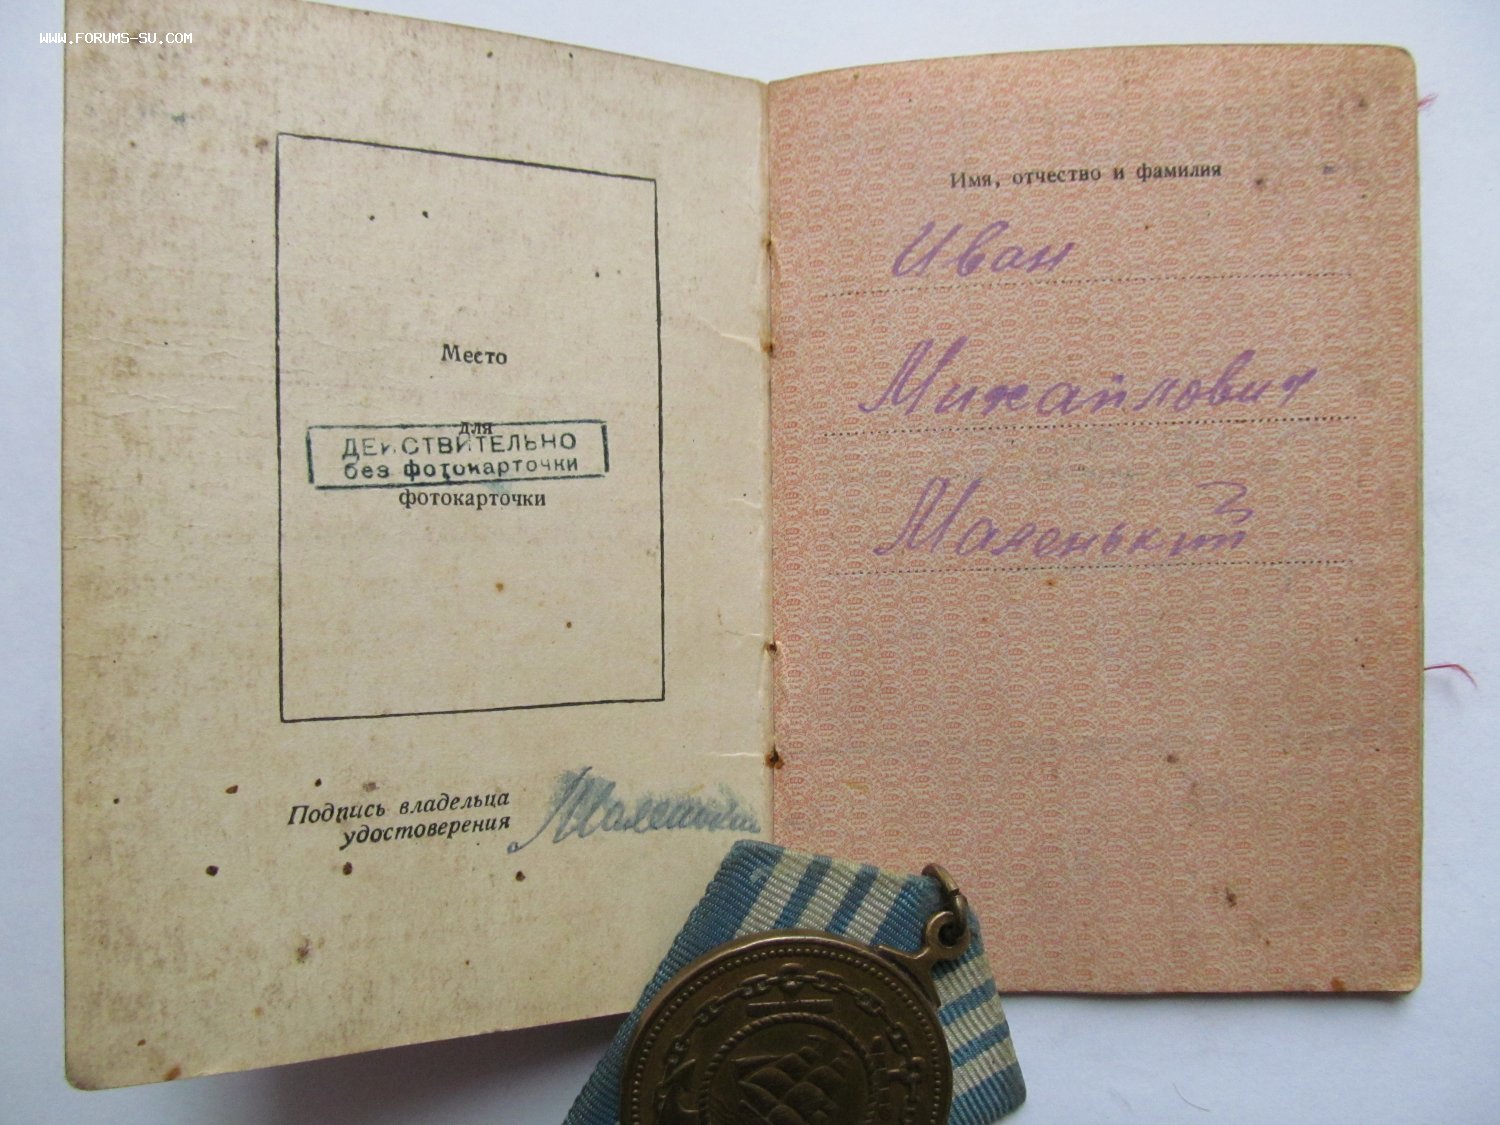 WWW.FORUMS-SU.COM
Место
для
ДЕЙСТВИТЕЛЬНО
без фотокарточки
фотокарточки
Подпись владельца
удостоверения
Маленький
Имя, отчество и фамилия
Иван
Михайлович
Маленький